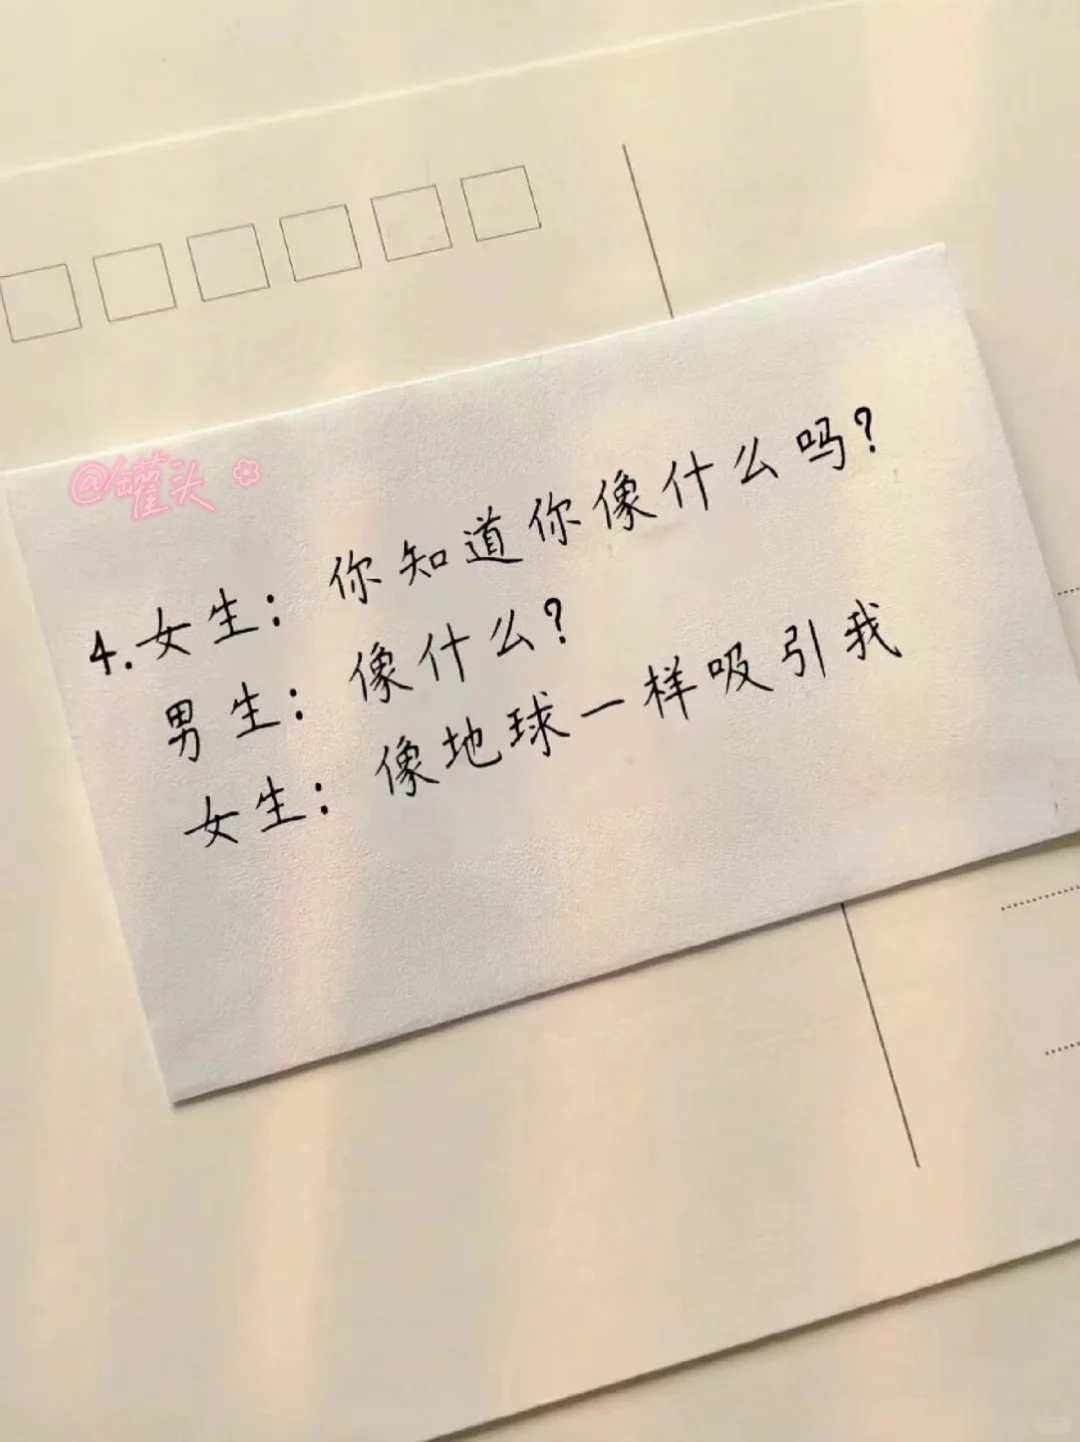 @罐头
4.女生：你知道你像什么吗？
男生：像什么？
女生：像地球一样吸引我